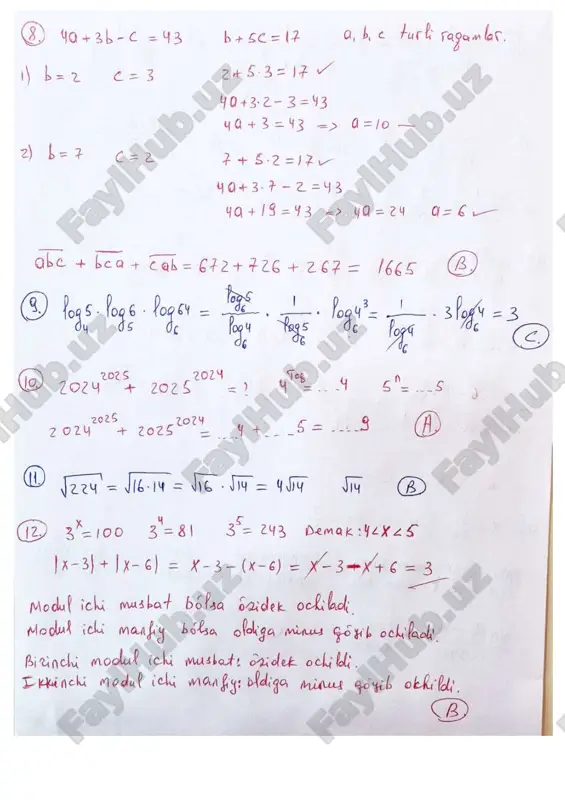 8. 4a+3b-c=43 b+5c=17 a, b, c turli raqamlar.
1) b=2 c=3 2+5·3=17 ✓
4a+3·2-3=43
4a+3=43 => a=10 —
2) b=7 c=2 7+5·2=17 ✓
4a+3·7-2=43
4a+19=43 => 4a=24 a=6 ✓
abc + bca + cab = 672+726+267 = 1665 B.
9. log₄5 · log₅6 · log₆64 = log₆5/log₆4 · 1/log₆5 · log₆4³ = 1/log₆4 · 3log₆4 = 3
C.
10. 2024²⁰²⁵ + 2025²⁰²⁴ = ? 4^Toq = ....4 5ⁿ = ....5
2024²⁰²⁵ + 2025²⁰²⁴ = ....4 + ....5 = ....9 A.
11. √224 = √16·14 = √16 · √14 = 4√14 √14 B
12. 3ˣ=100 3⁴=81 3⁵=243 Demak: 4<x<5
|x-3| + |x-6| = x-3-(x-6) = x-3-x+6 = 3
Modul ichi musbat bólsa ózidek ochiladi.
Modul ichi manfiy bólsa oldiga minus qóyib ochiladi.
Birinchi modul ichi musbat: ózidek ochildi.
Ikkinchi modul ichi manfiy: oldiga minus qóyib okhildi.
B
FaylHub.uz
FaylHub.uz
FaylHub.uz
FaylHub.uz
FaylHub.uz
FaylHub.uz